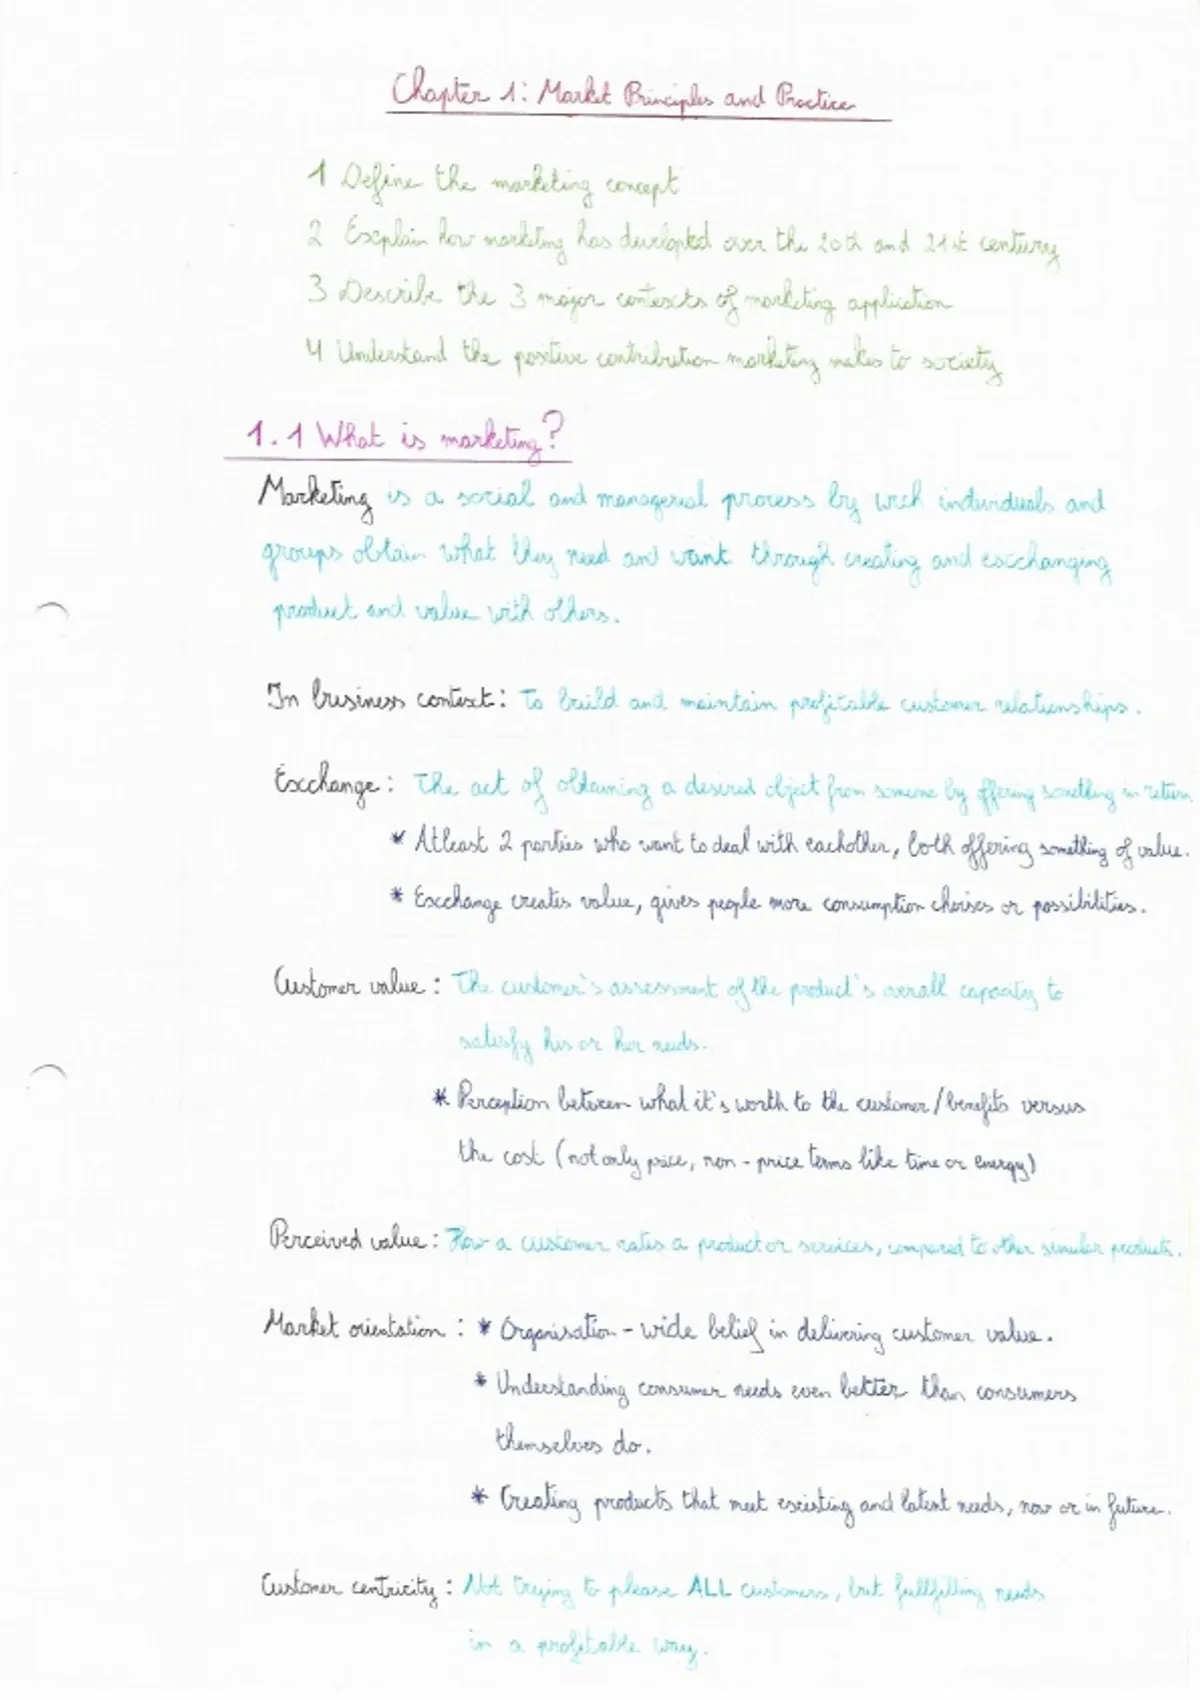 Chapter 1: Market Principles and Practice
1 Define the marketing concept
2 Explain how marketing has developted over the 20th and 21st century
3 Describe the 3 major contexts of marketing application
4 Understand the positive contribution marketing makes to society
1.1 What is marketing?
Marketing is a social and managerial process by wich individuals and
groups obtain what they need and want through creating and exchanging
product and value with others.
In business context: To build and maintain profitable customer relationships.
Exchange: The act of obtaining a desired object from someone by offering something in return
* Atleast 2 parties who want to deal with eachother, both offering something of value.
* Exchange creates value, gives people more consumption choises or possibilities.
Customer value: The customer's assessment of the product's overall capacity to
satisfy his or her needs.
* Perception between what it's worth to the customer/benefits versus
the cost (not only price, non-price terms like time or energy)
Perceived value: How a customer rates a product or services, compared to other similar products.
Market orientation: * Organisation-wide belief in delivering customer value.
* Understanding consumer needs even better than consumers
themselves do.
* Creating products that meet existing and latent needs, now or in future.
Customer centricity: Not trying to please ALL customers, but fullfilling needs
in a profitable way.